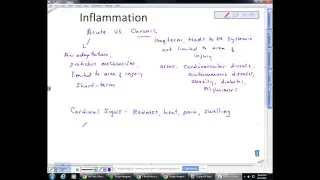 Inflammation
Acute vs. Chronic
An adaptation,
protective mechanism
limited to area of injury
Short-term
long term, tends to be systemic
not limited to area of
injury
assoc. cardiovascular disease,
autoimmune diseases,
obesity, diabetes,
Alzheimers
Cardinal Signs - Redness, heat, pain, swelling